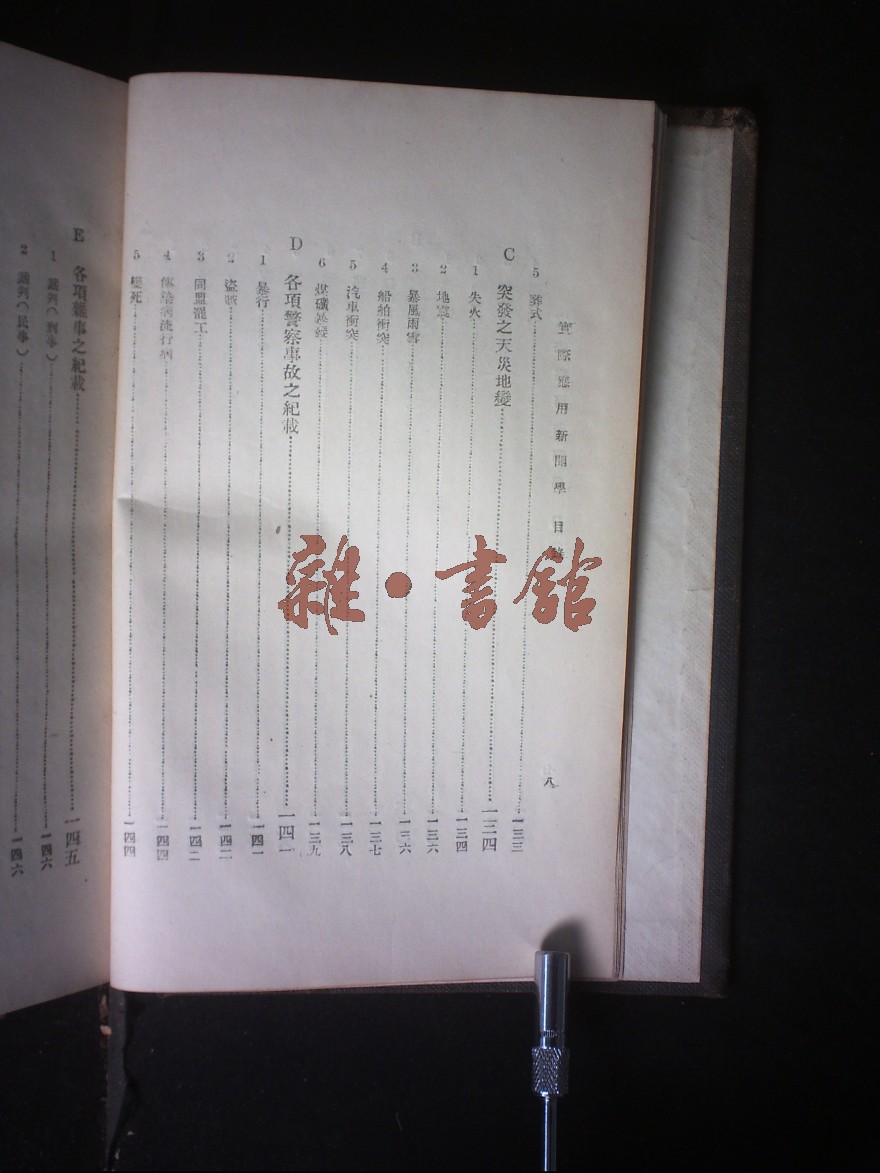 實際應用新聞學 目錄
八
5 葬式 一三三
C 突發之天災地變 一三四
1 失火 一三四
2 地震 一三六
3 暴風雨雪 一三六
4 船舶衝突 一三七
5 汽車衝突 一三八
6 煤礦 一三九
D 各項警察事故之紀載 一四一
1 暴行 一四一
2 盜賊 一四二
3 同盟罷工 一四二
4 傳染病流行病 一四四
5 變死 一四四
E 各項雜事之紀載 一四五
1 裁判(刑事) 一四六
2 裁判(民事) 一四六
雜·書館